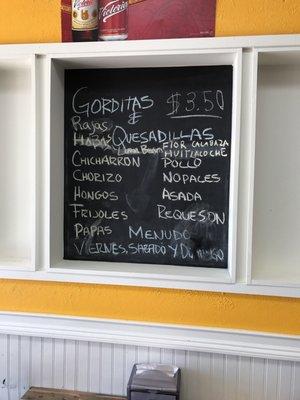 Victoria
GORDITAS $3.50
&
QUESADILLAS
RAJAS
HABAS
FLOR CALABAZA
HUITLACOCHE
CHICHARRON
POLLO
CHORIZO
NOPALES
HONGOS
ASADA
FRIJOLES
REQUESON
PAPAS
MENUDO
VIERNES, SABADO Y DOMINGO